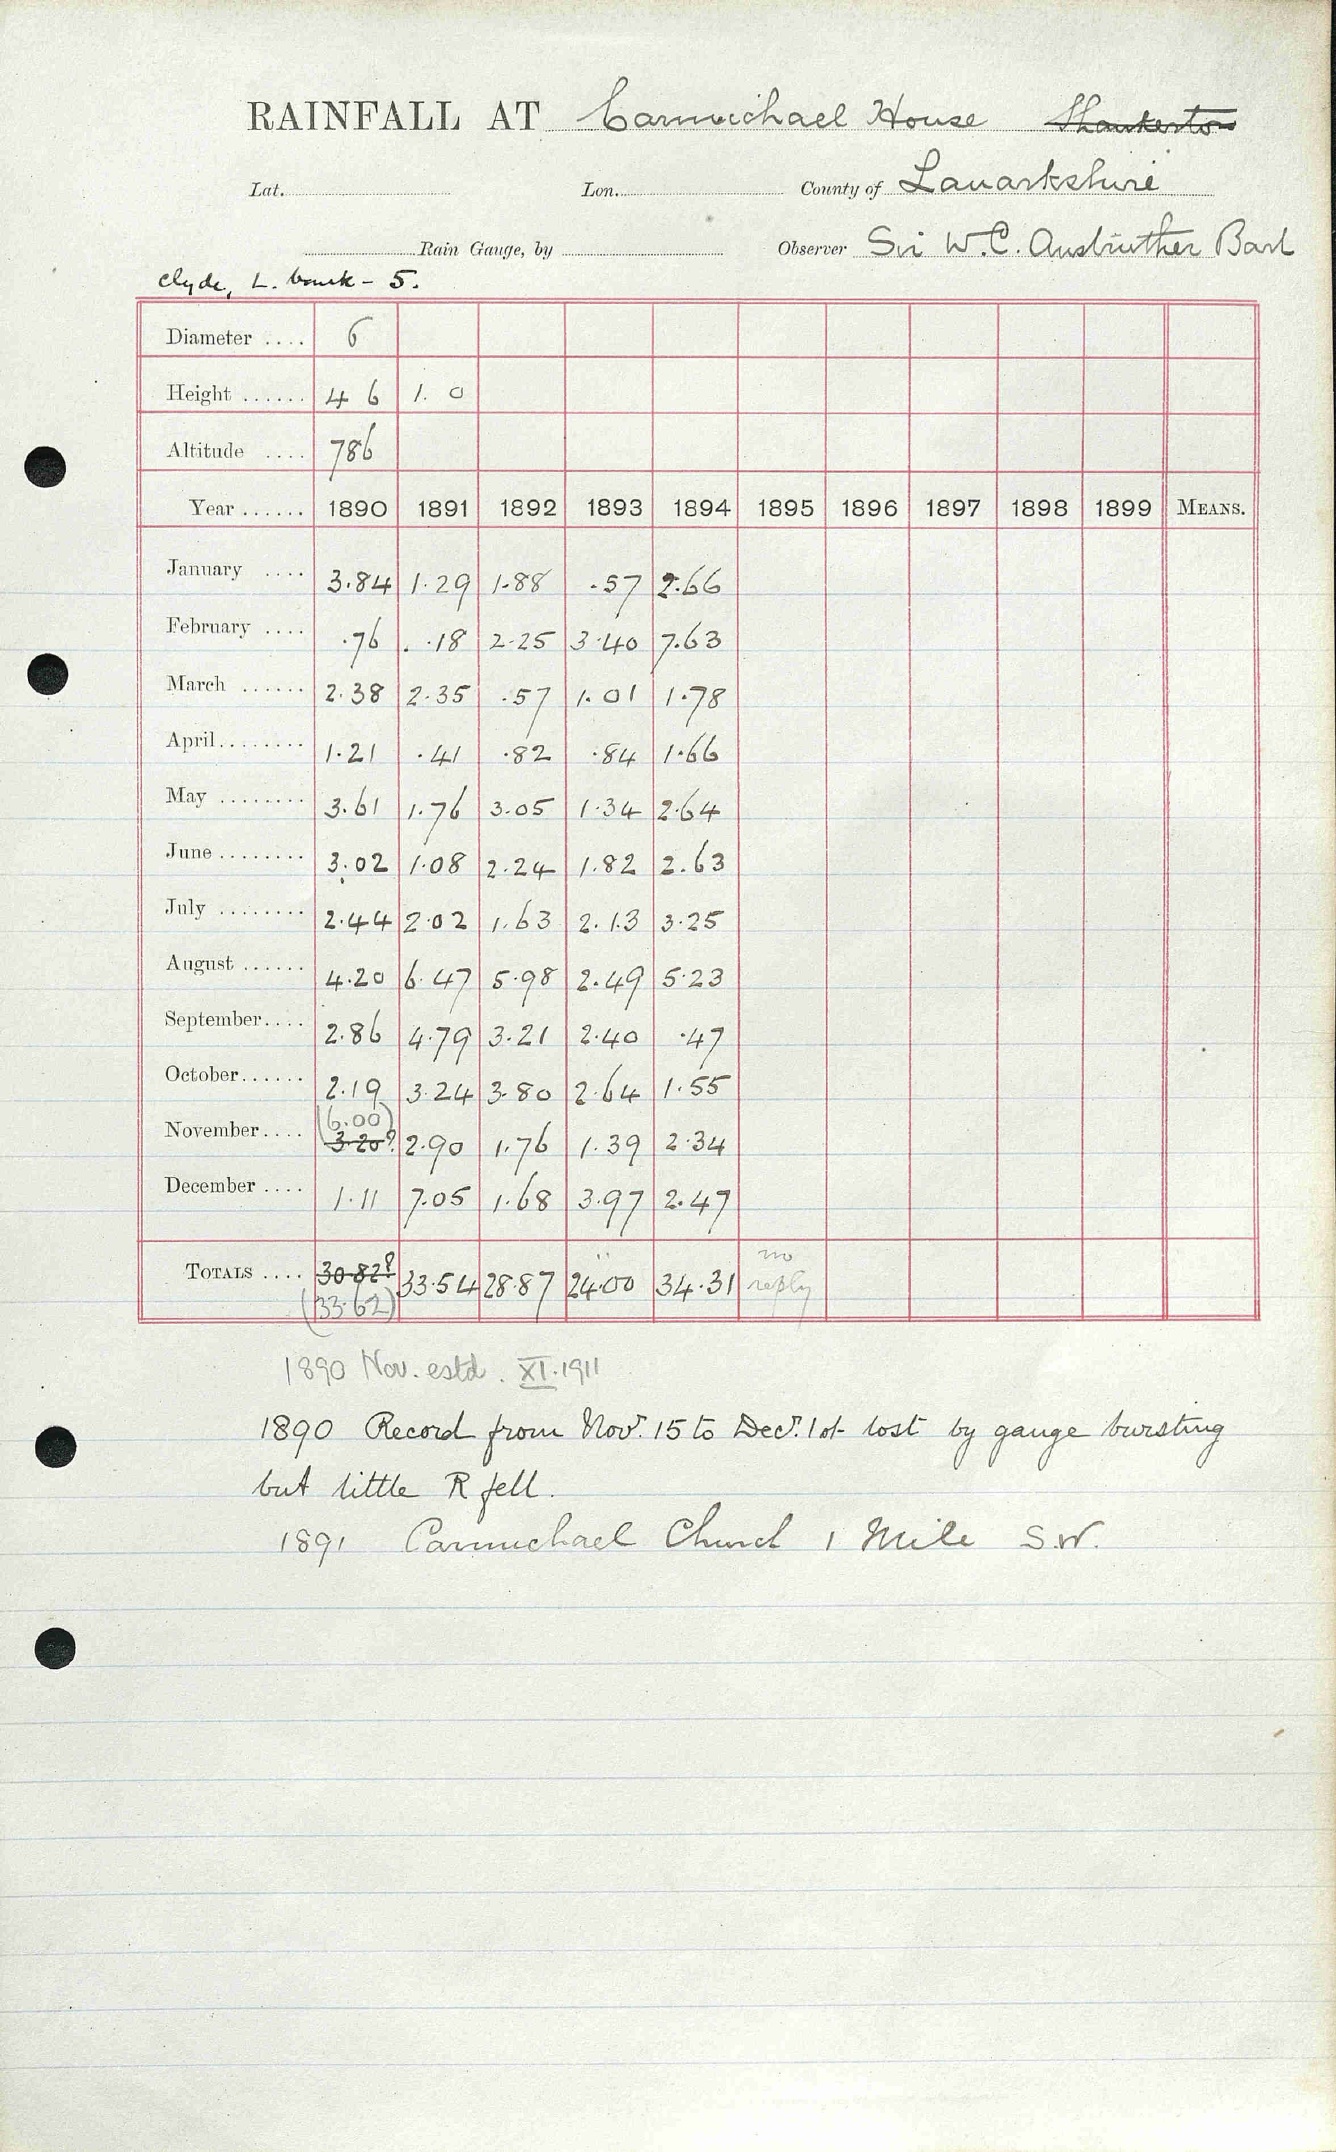 RAINFALL AT Carmichael House Thankerton
Lat. Lon. County of Lanarkshire
Rain Gauge, by Observer Sir W.C. Anstruther Bart
Clyde, L. bank - 5.
Diameter .... 6
Height ...... 4 6 1. 0
Altitude .... 786
Year ...... 1890 1891 1892 1893 1894 1895 1896 1897 1898 1899 MEANS.
January .... 3.84 1.29 1.88 .57 2.66
February .... .76 .18 2.25 3.40 7.63
March ...... 2.38 2.35 .57 1.01 1.78
April........ 1.21 .41 .82 .84 1.66
May ........ 3.61 1.76 3.05 1.34 2.64
June ........ 3.02 1.08 2.24 1.82 2.63
July ........ 2.44 2.02 1.63 2.13 3.25
August ...... 4.20 6.47 5.98 2.49 5.23
September.... 2.86 4.79 3.21 2.40 .47
October...... 2.19 3.24 3.80 2.64 1.55
(6.00)
November.... 3.20? 2.90 1.76 1.39 2.34
December .... 1.11 7.05 1.68 3.97 2.47
TOTALS .... 30.82? 33.54 28.87 24.00 34.31 no reply
(33.62)
1890 Nov. estd. XI.1911
1890 Record from Novr. 15 to Decr. 1st lost by gauge bursting
but little R fell.
1891 Carmichael Church 1 Mile S.W.